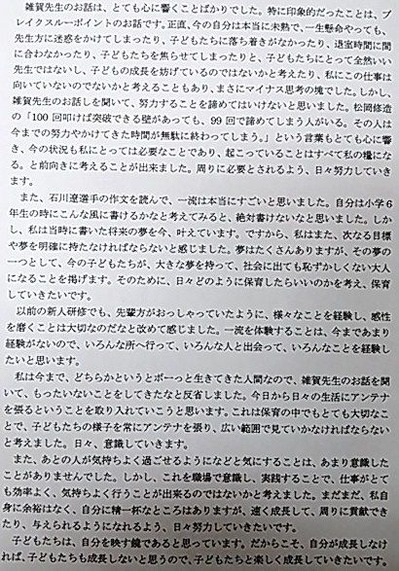 雑賀先生のお話は、とても心に響くことばかりでした。特に印象的だったことは、ブ
レイクスルーポイントのお話です。正直、今の自分は本当に未熟で、一生懸命やっても、
先生方に迷惑をかけてしまったり、子どもたちに落ち着きがなかったり、退室時間に間
に合わなかったり、子どもたちを焦らせてしまったりと、子どもたちにとって全然いい
先生ではないし、子どもの成長を妨げているのではないかと考えたり、私にこの仕事は
向いていないのでないかと考えることもあり、まさにマイナス思考の塊でした。しかし、
雑賀先生のお話しを聞いて、努力することを諦めてはいけないと思いました。松岡修造
の「100 回叩けば突破できる壁があっても、99 回で諦めてしまう人がいる。その人は
今までの努力やかけてきた時間が無駄に終わってしまう。」という言葉もとても心に響
き、今の状況も私にとっては必要なことであり、起こっていることはすべて私の糧にな
る。と前向きに考えることが出来ました。周りに必要とされるよう、日々努力していき
ます。
また、石川遼選手の作文を読んで、一流は本当にすごいと思いました。自分は小学6
年生の時にこんな風に書けるかなと考えてみると、絶対書けないなと思いました。しか
し、私は当時に書いた将来の夢を今、叶えています。ですから、私はまた、次なる目標
や夢を明確に持たなければならないと感じました。夢はたくさんありますが、その夢の
一つとして、今の子どもたちが、大きな夢を持って、社会に出ても恥ずかしくない大人
になることを掲げます。そのために、日々どのように保育したらいいのかを考え、保育
していきたいです。
以前の新人研修でも、先輩方がおっしゃっていたように、様々なことを経験し、感性
を磨くことは大切なのだなと改めて感じました。一流を体験することは、今まであまり
経験がないので、いろんな所へ行って、いろんな人と出会って、いろんなことを経験し
たいと思います。
私は今まで、どちらかというとボーっと生きてきた人間なので、雑賀先生のお話を聞
いて、もったいないことをしてきたなと反省しました。今日から日々の生活にアンテナ
を張るということを取り入れていこうと思います。これは保育の中でもとても大切なこ
とで、子どもたちの様子を常にアンテナを張り、広い範囲で見ていかなければならない
と考えました。日々、意識していきます。
また、あとの人が気持ちよく過ごせるようになどと気にすることは、あまり意識した
ことがありませんでした。しかし、これを職場で意識し、実践することで、仕事がとて
も効率よく、気持ちよく行うことが出来るのではないかと考えました。まだまだ、私自
身に余裕はなく、自分に精一杯なところはありますが、速く成長して、周りに貢献でき
たり、与えられるようになれるよう、日々努力していきたいです。
子どもたちは、自分を映す鏡であると思っています。だからこそ、自分が成長しなけ
れば、子どもたちも成長しないと思うので、子どもたちと楽しく成長していきたいです。